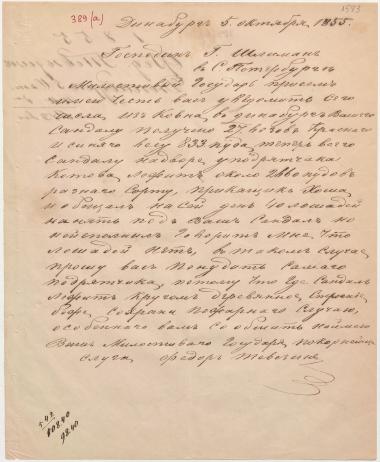 389(а)
1543
Динабургъ 5 октября 1855.
Господинъ Г. Шлиманъ
в С Петрбургъ
Милостовой Государь присемъ
имею честь васъ уведомить Сего
числа изъ Ковна, в динабургъ Вашего
Сандалу получено 27 возовъ Краснаго
и синяго весу 833 пуда теперь всего
Сандалу на дворе у подрятчика
лежитъ около 2800 пудовъ
разнаго Сорту, прикащикъ
и обещелъ на сей день 40 лошадей
нанять подъ Вашъ Сандалъ но
говоритъ мне что
лошадей нетъ, в такомъ случае
прошу васъ понудать Самаго
подрятчика, потому что где Сандалъ
лежитъ кругомъ деревянное
сохрани пожарнаго Случаю,
особенного вамъ сообщить неимею
Вашъ Милостиваго Государя покорнейший
слуга Федоръ
542
10840
9840